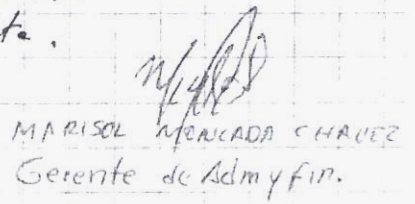 te.
MARISOL MONCADA CHAVEZ
Gerente de Adm y fin.